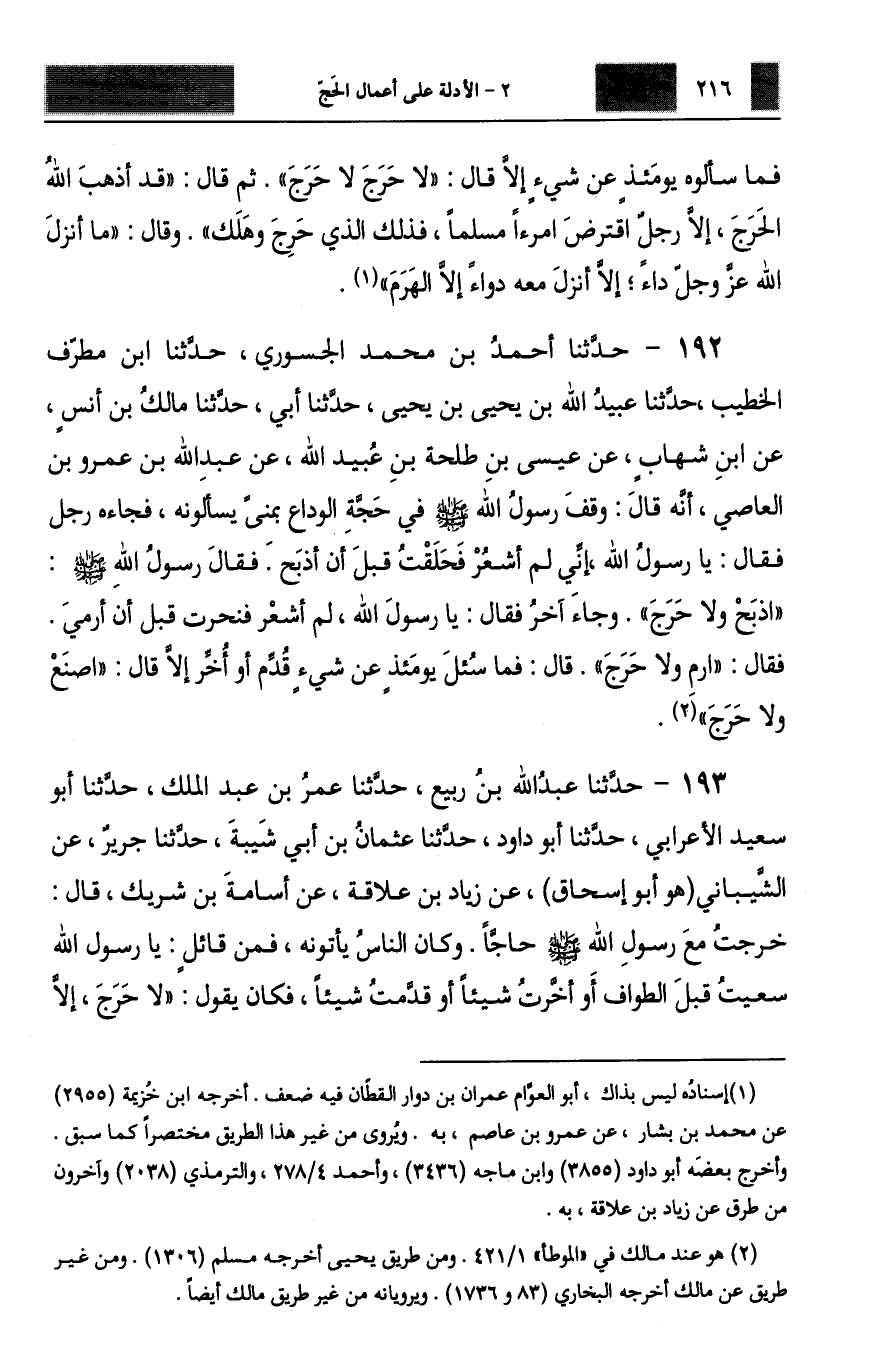 ٢١٦
٢ - الأدلة على أعمال الحَجّ
فـما سـألوه يومَئـذٍ عن شيءٍ إلاَّ قال : «لا حَرَجَ لا حَرَجَ» . ثم قال : «قـد أذهبَ اللهُ
الحَرَجَ ، إلاَّ رجلٌ اقترضَ امرءاً مسلماً ، فذلك الذي حَرِجَ وهَلَك» . وقال : «ما أنزلَ
الله عزَّ وجلّ داءً ؛ إلاَّ أنزلَ معه دواءً إلاَّ الهَرَمَ»(١) .
١٩٢ - حـدَّثنا أحـمـدُ بن محـمـد الجـسـوري ، حـدَّثنا ابن مطرّف
الخطيب ،حدَّثنا عبيدُ الله بن يحيى بن يحيى ، حدَّثنا أبي ، حدَّثنا مالكُ بن أنسٍ ،
عن ابنِ شـهابٍ ، عن عيـسى بنِ طلحة بنِ عُبيـد الله ، عن عبـدِالله بن عمـرو بن
العاصي ، أنَّه قالَ : وقفَ رسولُ الله ﷺ في حَجَّةِ الوداع بمنىً يسألونه ، فجاءه رجل
فـقـال : يا رسـولُ الله ،إنِّي لـم أشـعُرْ فَحَلَقْتُ قبـلَ أن أذبَح . فـقـالَ رسـولُ اللهِ ﷺ :
«اذبَحْ ولا حَرَجَ» . وجاءَ آخرُ فقال : يا رسولَ الله ، لم أشعْر فنحرت قبل أن أرميَ .
فقال : «ارم ولا حَرَجَ» . قال : فما سُئلَ يومَئذٍ عن شيءٍ قُدِّم أو أُخِّر إلاَّ قال : «اصنَعْ
ولا حَرَجَ»(٢) .
١٩٣ - حدَّثنا عبدُالله بنُ ربيع ، حدَّثنا عمرُ بن عبد الملك ، حدَّثنا أبو
سـعيـد الأعرابي ، حدَّثنا أبو داود ، حدَّثنا عثمانُ بن أبي شَيبةَ ، حدَّثنا جريرٌ ، عن
الشَّيـبـاني(هو أبـو إسـحاق) ، عن زياد بن عـلاقـة ، عن أسـامـةَ بن شـريك ، قـال :
خـرجتُ معَ رسـولِ الله ﷺ حـاجَّاً . وكـان الناسُ يـأتونه ، فـمن قـائلٍ : يا رسـول الله
سـعيـتُ قبلَ الطواف أَو أخَّرتُ شـيئاً أو قدَّمتُ شـيئاً ، فكان يقول : «لا حَرَجَ ، إلاَّ
(١)إسنادُه ليس بذاك ، أبو العوَّام عمران بن دوار القطّان فيه ضعف . أخرجه ابن خُزيمة (٢٩٥٥)
عن محمد بن بشار ، عن عمرو بن عاصم ، به . ويُروى من غير هذا الطريق مختصراً كما سبق .
وأخرج بعضَه أبو داود (٣٨٥٥) وابن ماجه (٣٤٣٦) ، وأحمد ٢٧٨/٤ ، والترمذي (٢٠٣٨) وآخرون
من طرق عن زياد بن علاقة ، به .
(٢) هو عند مالك في «الموطأ» ٤٢١/١ . ومن طريق يحيى أخرجه مسلم (١٣٠٦) . ومن غير
طريق عن مالك أخرجه البخاري (٨٣ و ١٧٣٦) . ويرويانه من غير طريق مالك أيضاً .